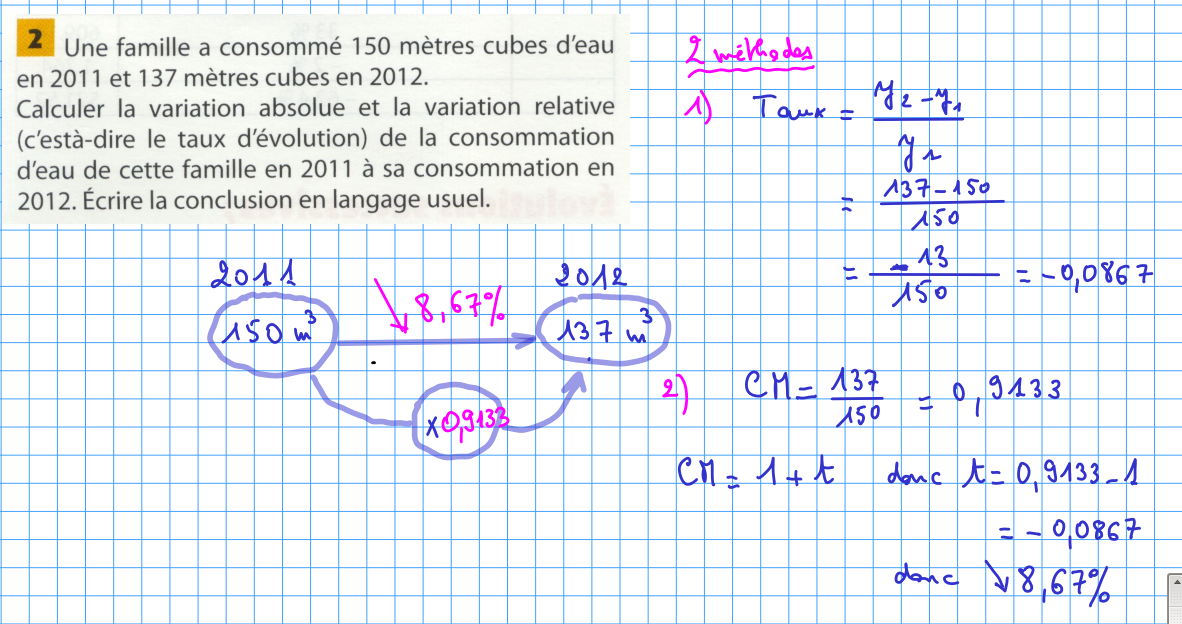 2 Une famille a consommé 150 mètres cubes d'eau
en 2011 et 137 mètres cubes en 2012.
Calculer la variation absolue et la variation relative
(c'està-dire le taux d'évolution) de la consommation
d'eau de cette famille en 2011 à sa consommation en
2012. Écrire la conclusion en langage usuel.
2011
2012
150 m³
↘ 8,67%
137 m³
×0,9133
2 méthodes
1) Taux = (y₂ - y₁) / y₁
= (137 - 150) / 150
= -13 / 150 = -0,0867
2) CM = 137 / 150 = 0,9133
CM = 1 + t donc t = 0,9133 - 1
= - 0,0867
donc ↘ 8,67%